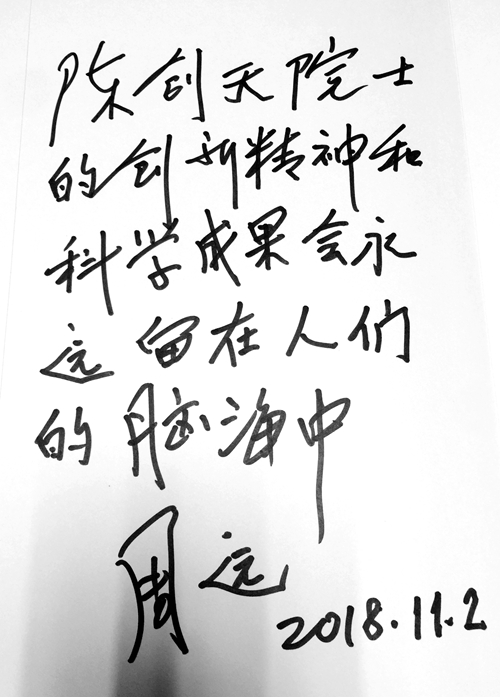 陈创天院士
的创新精神和
科学成果会永
远留在人们
的脑海中
周远
2018.11.2